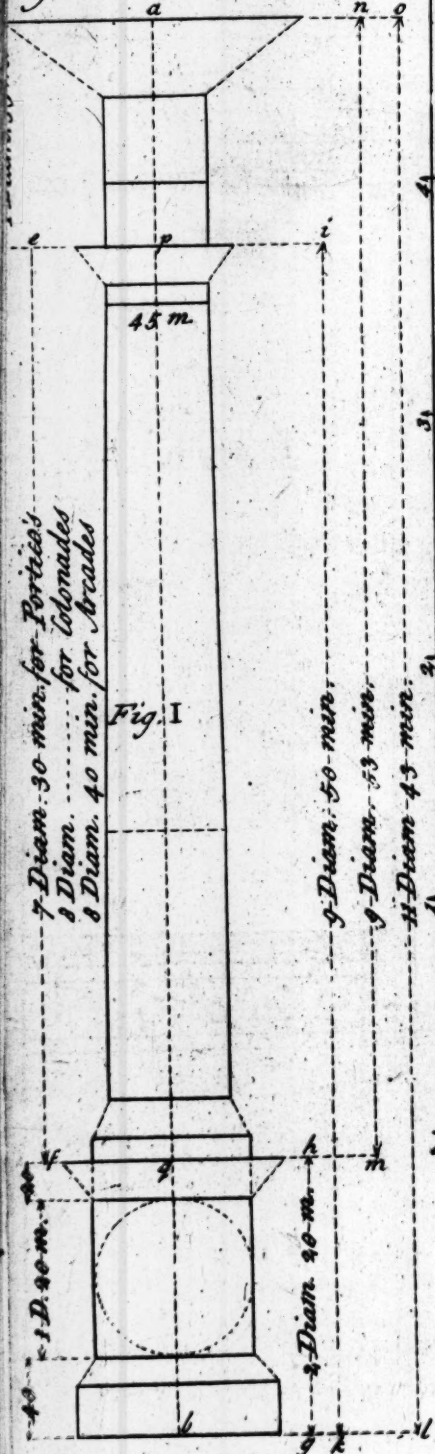 a
n
o
4
e
p
i
45 m.
3
7 Diam. 30 min. for Portico's
8 Diam. ........ for Colonades
8 Diam. 40 min. for Arcades
Fig. I
2
9 Diam. 50 min.
9 Diam. 53 min.
11 Diam 43 min.
1
f
q
h
m
1 D. 20 m.
2 Diam. 20 m.
40
b
g
k
l